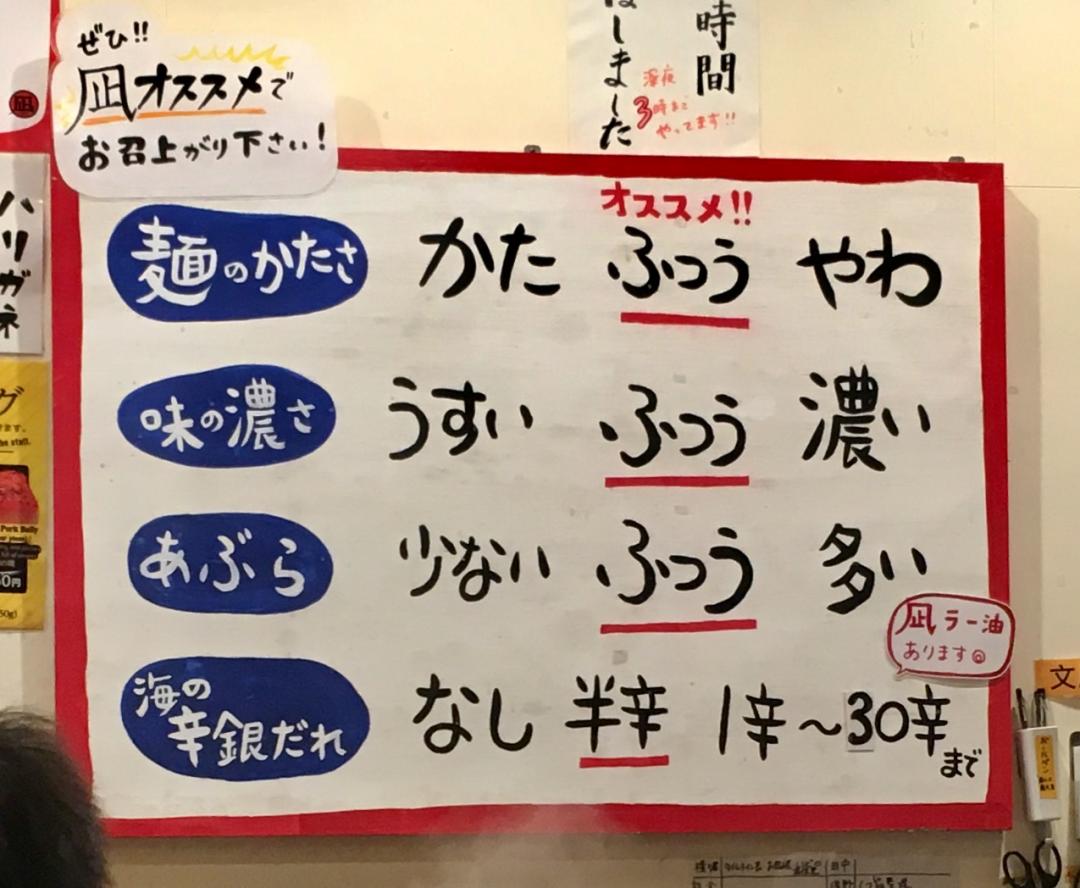 ぜひ!!
凪オススメで
お召上がり下さい!
時間
ました
深夜
3時まで
やってます!!
凪
ハリガネ
オススメ!!
麺のかたさ かた ふつう やわ
味の濃さ うすい ふつう 濃い
あぶら 少ない ふつう 多い
凪ラー油
あります
海の
辛銀だれ なし 半辛 1辛〜30辛
まで
グ
the staff.
Pork Belly
0円
50g)
文